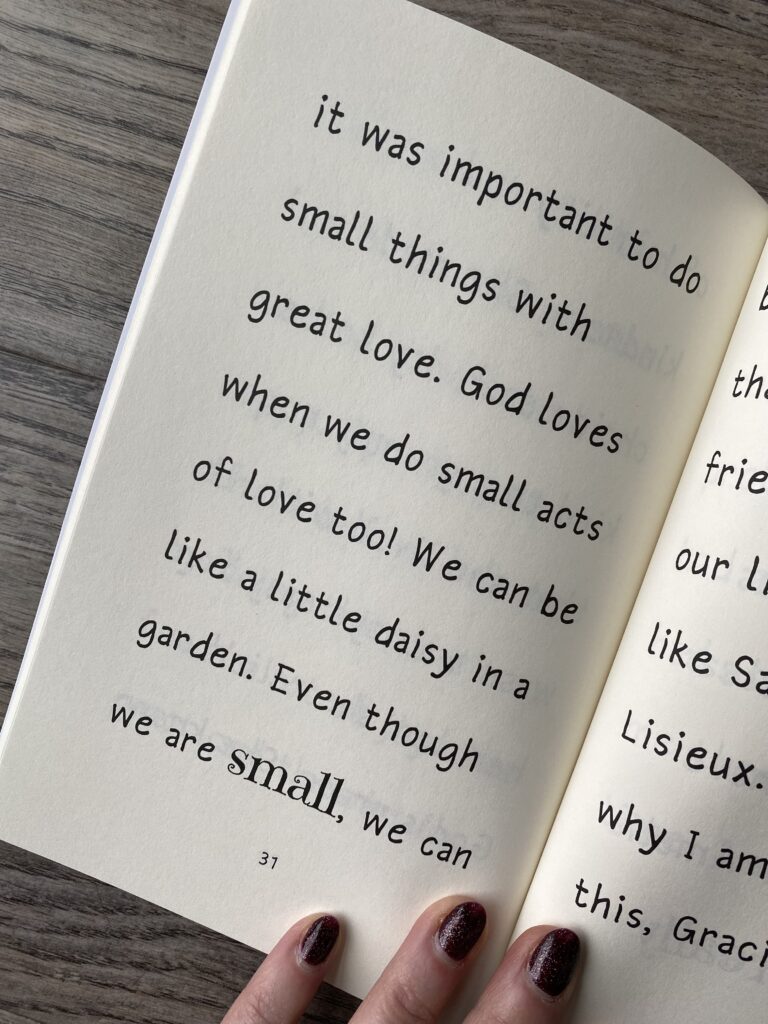 it was important to do
small things with
great love. God loves
when we do small acts
of love too! We can be
like a little daisy in a
garden. Even though
we are small, we can
31
our
like
Lisieux.
why I am
this,